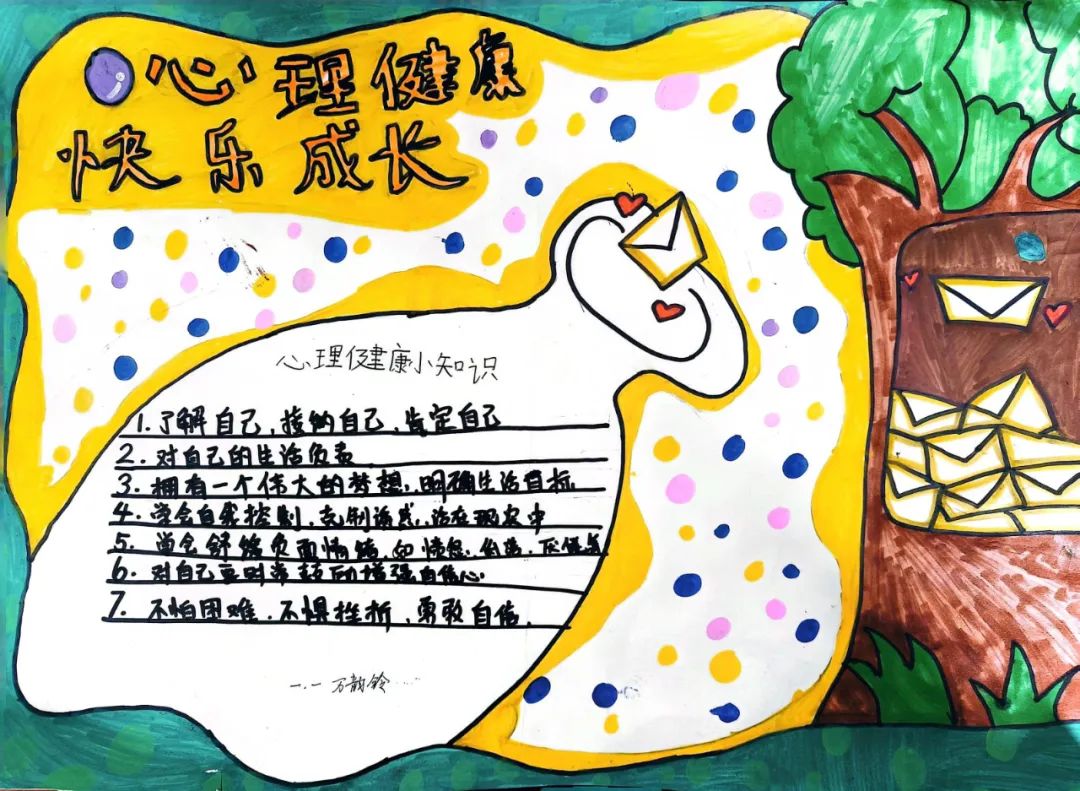 心理健康
快乐成长
心理健康小知识
1.了解自己,接纳自己,肯定自己
2.对自己的生活负责
3.拥有一个伟大的梦想,明确生活目标
4.学会自我控制,克制诱惑,活在现实中
5.学会舒缓负面情绪,如愤怒、低落、厌倦
6.对自己要时常 增强自信心.
7.不怕困难,不惧挫折,勇敢自信.
一.一 万韵铃